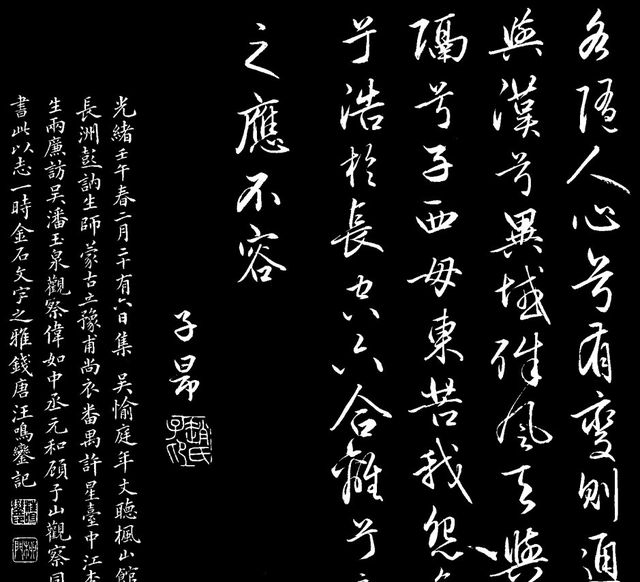 各隨人心兮有變則通
與漢兮異域殊風天與
隔兮子西母東苦我怨
兮浩於長空六合離兮
之應不容
子昂
趙氏子昂
光緒壬午春二月二十有六日集吳愉庭年丈聽楓山館
長洲彭訥生師蒙古立豫甫尚衣番禺許星臺中江李
生兩廉訪吳潘玉泉觀察偉如中丞元和顧子山觀察同
書此以志一時金石文字之雅錢唐汪鳴鑾記